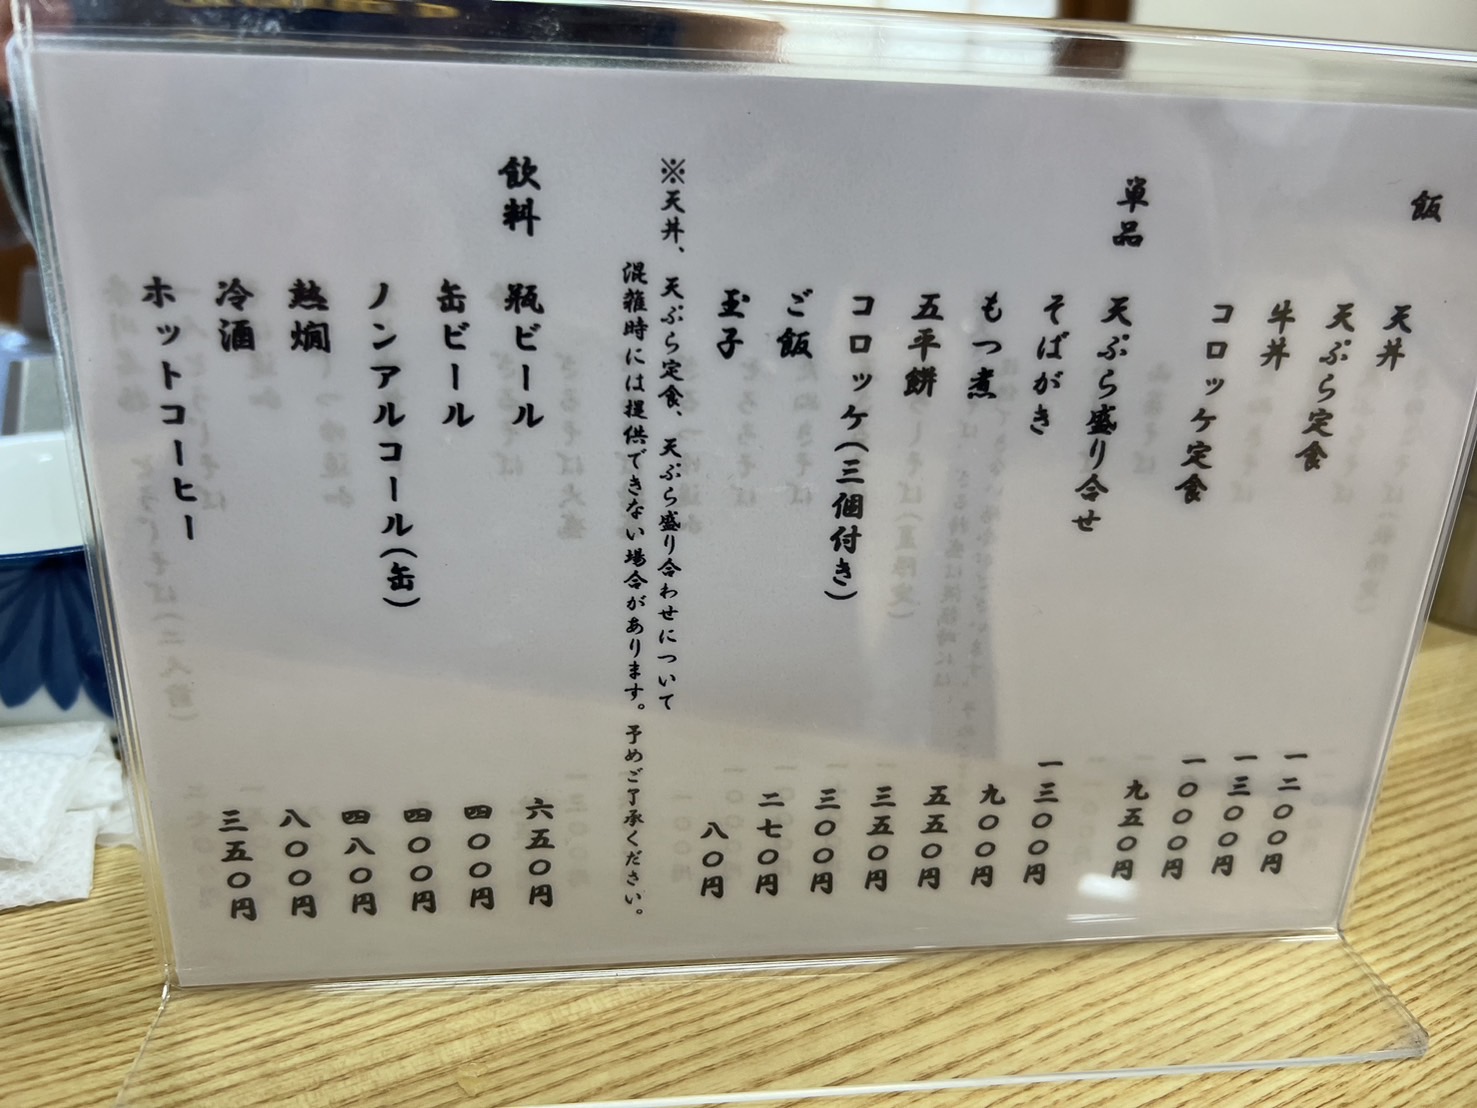 飯
天丼 一二〇〇円
天ぷら定食 一三〇〇円
牛丼 一〇〇〇円
コロッケ定食 九五〇円
単品
天ぷら盛り合せ 一三〇〇円
そばがき 九〇〇円
もつ煮 五五〇円
五平餅 三五〇円
コロッケ(三個付き) 三〇〇円
ご飯 二七〇円
玉子 八〇円
※天丼、天ぷら定食、天ぷら盛り合わせについて
混雑時には提供できない場合があります。予めご了承ください。
飲料
瓶ビール 六五〇円
缶ビール 四〇〇円
ノンアルコール(缶) 四〇〇円
熱燗 四八〇円
冷酒 八〇〇円
ホットコーヒー 三五〇円